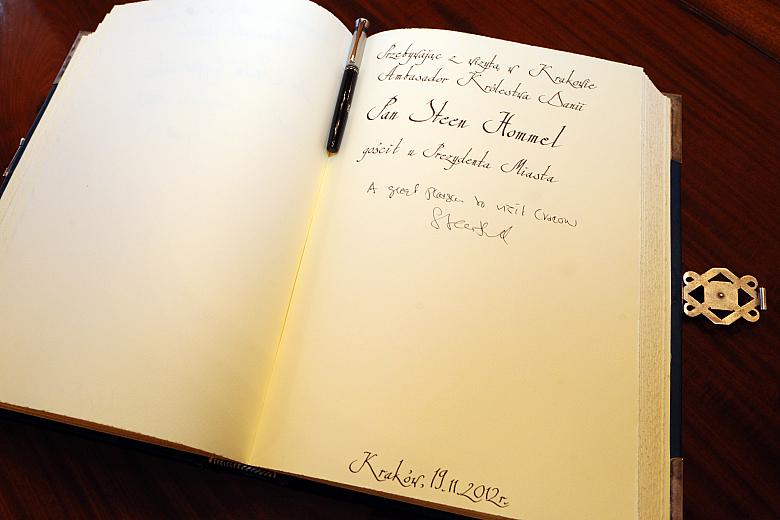 Przebywając z wizytą w Krakowie
Ambasador Królestwa Danii
Pan Steen Hommel
gościł u Prezydenta Miasta
A great pleasure to visit Cracow
Kraków, 19.11.2012r.